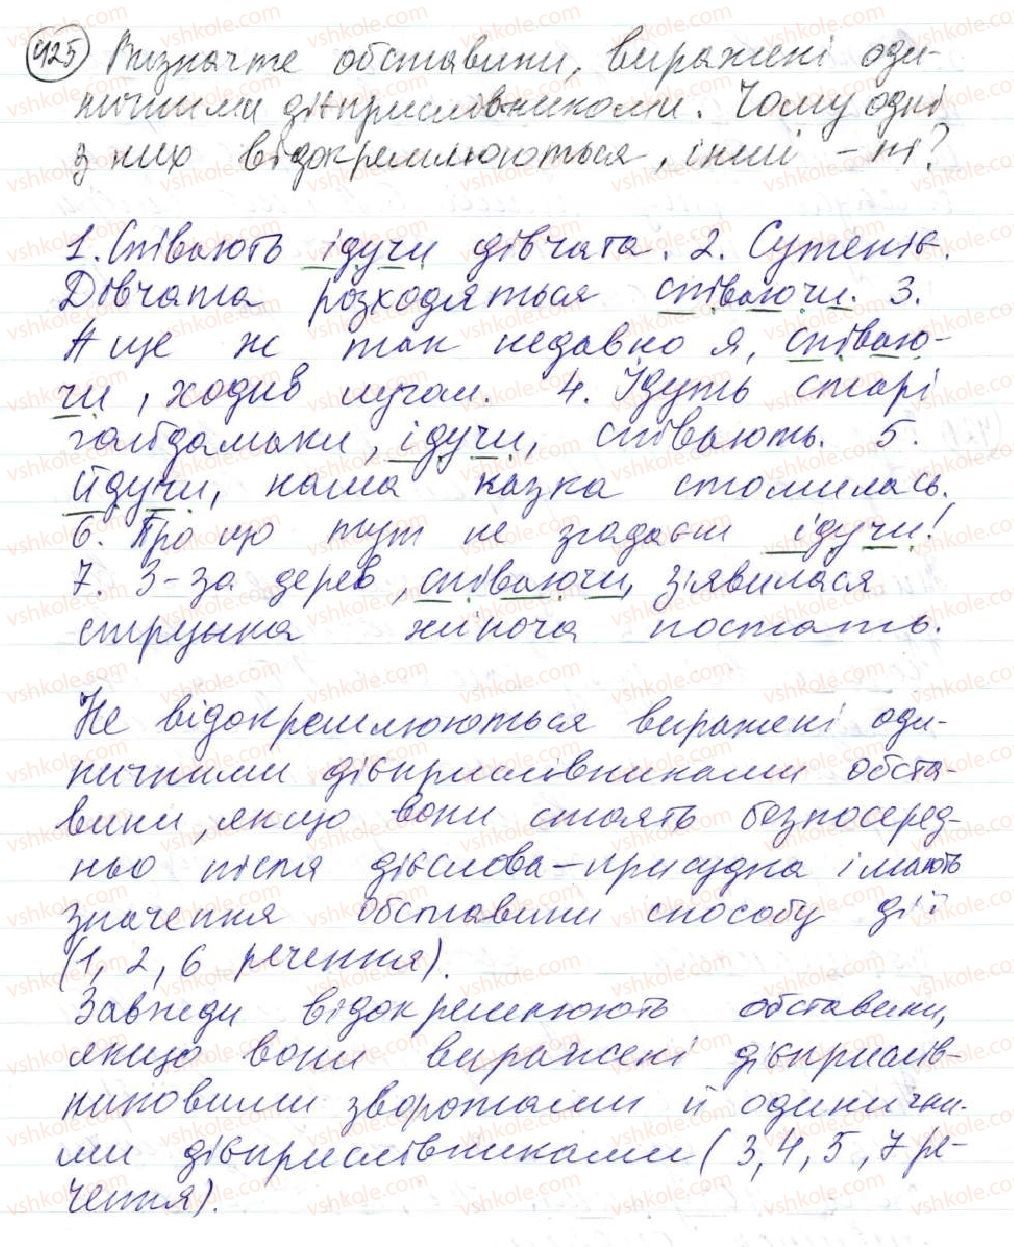 425 Визначте обставини, виражені оди-
ничними дієприслівниками. Чому одні
з них відокремлюються, інші – ні?
1. Співають ідучи дівчата. 2. Сутеніє.
Дівчата розходяться співаючи. 3.
А ще ж так недавно я, співаю-
чи, ходив лугом. 4. Ідуть старі
гайдамаки, ідучи, співають. 5.
Йдучи, наша казка стомилась.
6. Про що тут не згадаєш ідучи!
7. З-за дерев, співаючи, з'явилася
струнка жіноча постать.
Не відокремлюються виражені оди-
ничними дієприслівниками обста-
вини, якщо вони стоять безпосеред-
ньо після дієслова–присудка і мають
значення обставини способу дії
(1, 2, 6 речення).
Завжди відокремлюють обставини,
якщо вони виражені дієприслів-
никовими зворотами й одинични-
ми дієприслівниками (3, 4, 5, 7 ре-
чення).